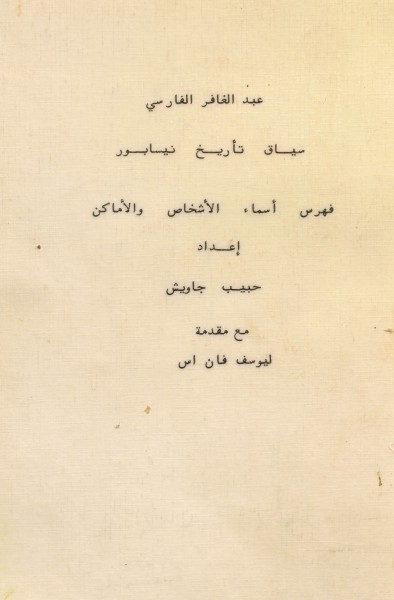 عبد الغافر الفارسي
سياق تأريخ نيسابور
فهرس أسماء الأشخاص والأماكن
إعداد
حبيب جاويش
مع مقدمة
ليوسف فان اس